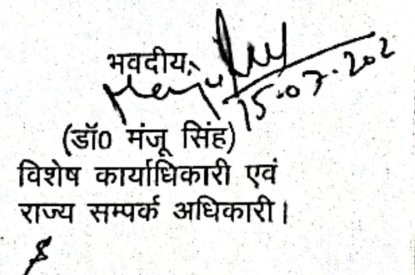 भवदीय,
15.07.202
(डॉ0 मंजू सिंह)
विशेष कार्याधिकारी एवं
राज्य सम्पर्क अधिकारी।